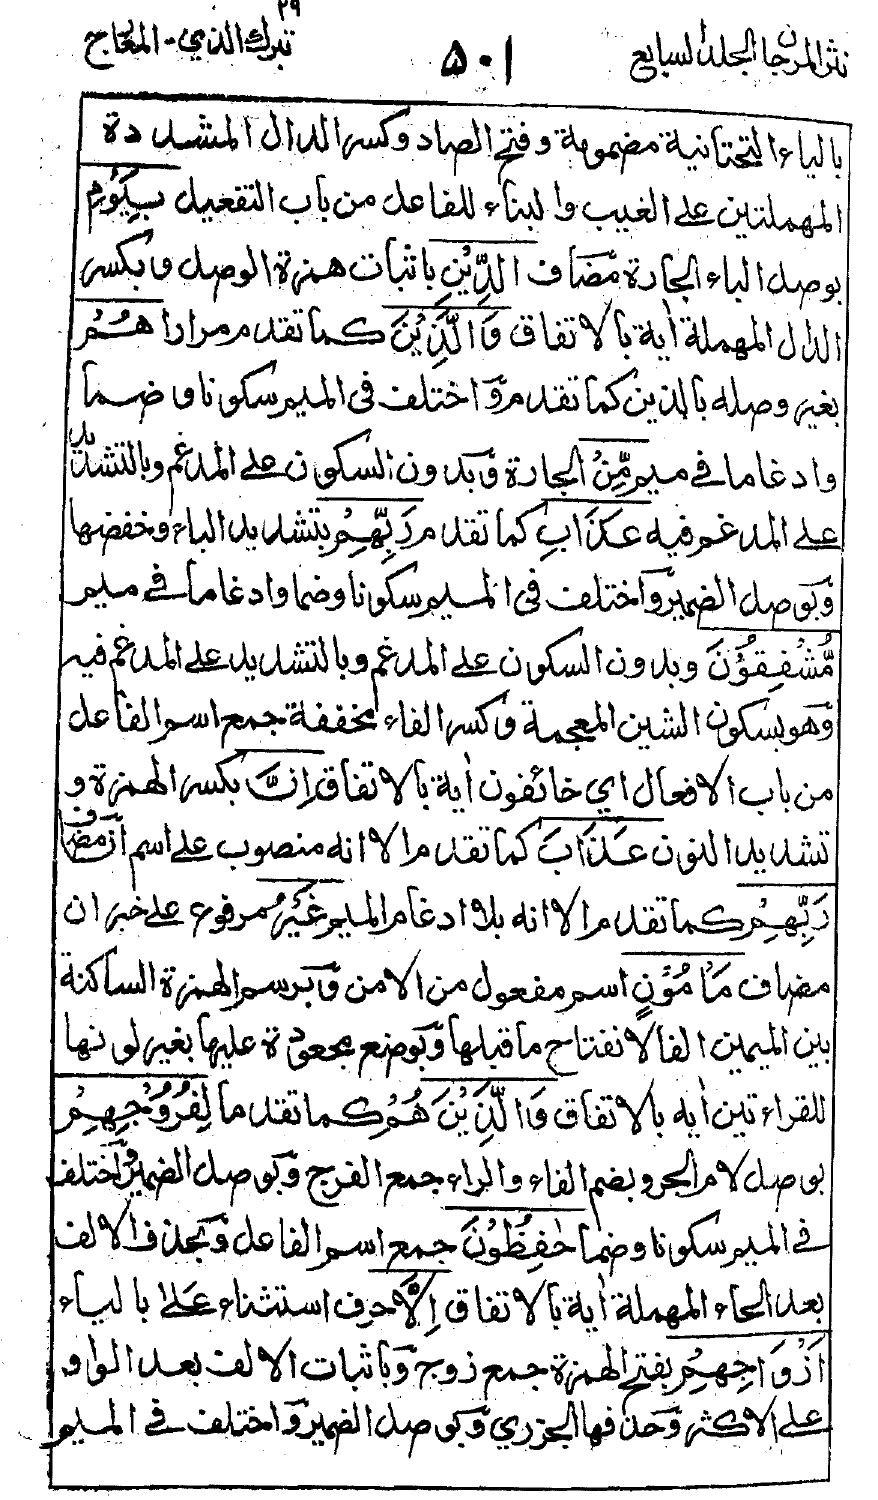 ٢٩
نثر المرجان الجلد السابع ٥٠١ تبرك الذي - المعارج
بالياء التحتانية مضمومة و فتح الصاد و كسر الدال المشددة
المهملتين على الغيب والبناء للفاعل من باب التفعيل بِيَوْمِ
بوصل الباء الجارة مضاف الدِّيْنِ باثبات همزة الوصل وبكسر
الدال المهملة اٰية بالاتفاق وَالَّذِيْنَ كما تقدم مرارا هُمْ
بغير وصله بالذين كما تقدم و اختلف فى الميم سكونا و ضما
وادغاما في ميم مِّنْ الجارة و بدون السكون على المدغم وبالتشديد
على المدغم فيه عَذَابِ كما تقدم رَبِّهِمْ بتشديد الباء وخفضها
وبوصل الضمير واختلف فى الميم سكونا وضما وادغاما في ميم
مُّشْفِقُوْنَ وبدون السكون على المدغم وبالتشديد على المدغم فيه
وهو بسكون الشين المعجمة وكسر الفاء مخففة جمع اسم الفاعل
من باب الافعال اي خائفون اٰية بالاتفاق اِنَّ بكسر الهمزة و
تشديد النون عَذَابَ كما تقدم الا انه منصوب على اسم انّ مضاف
رَبِّهِمْ كما تقدم الا انه بلا ادغام الميم غَيْرُ مرفوع على خبر ان
مضاف مَأْمُوْنٍ اسم مفعول من الامن وبرسم الهمزة الساكنة
بين الميمين الفا لانفتاح ما قبلها وبوضع مجعودة عليها بغير لونها
للقراءتين اٰيه بالاتفاق وَالَّذِيْنَ هُمْ كما تقدما لِفُرُوْجِهِمْ
بوصل لام الجر و بضم الفاء والراء جمع الفرج وبوصل الضمير واختلف
في الميم سكونا وضما حٰفِظُوْنَ جمع اسم الفاعل وبحذف الالف
بعد الحاء المهملة اٰية بالاتفاق اِلَّا حرف استثناء عَلٰى بالياء
اَزْوَاجِهِمْ بفتح الهمزة جمع زوج وباثبات الالف بعد الواو
على الاكثر وحذفها الجزري وبوصل الضمير واختلف في الميم